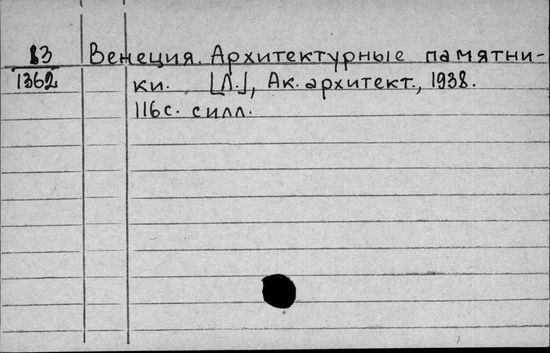 В3 Венеция. Архитектурные памятни-
1362 ки. [Л.], Ак. архитект., 1938.
116с. силл.